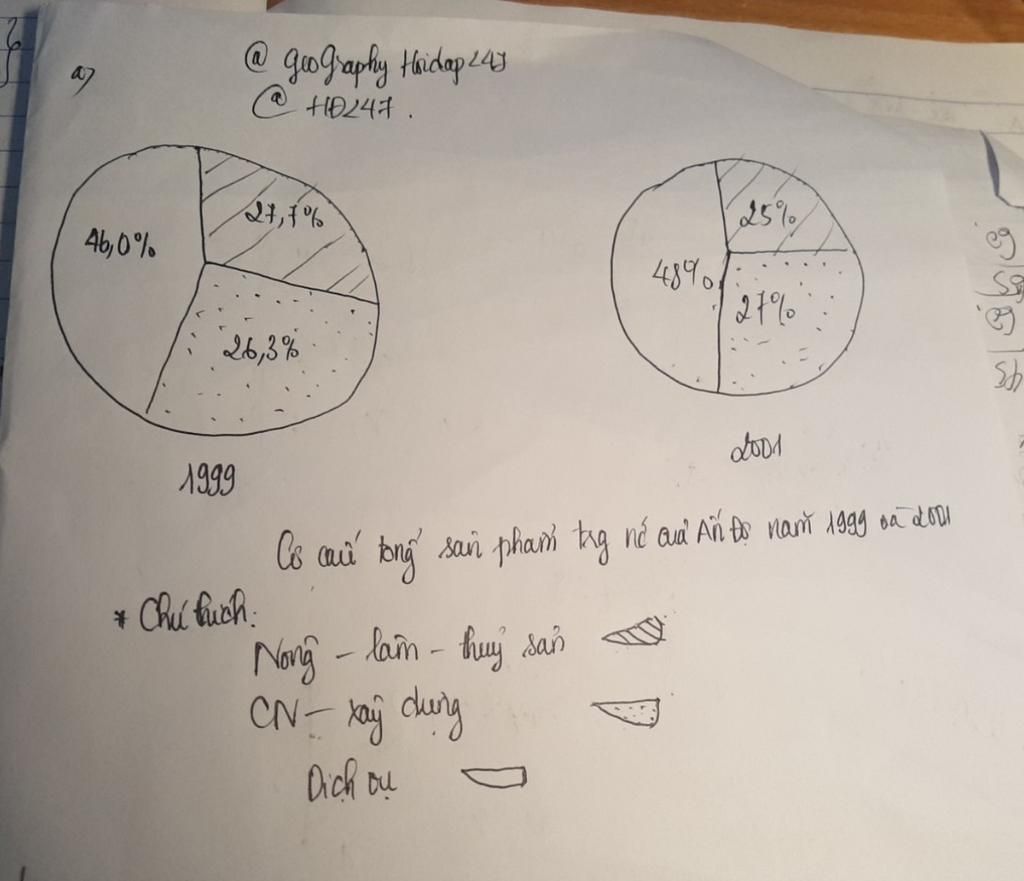 a)
@ geography Hoidap247
@ HD247.
46,0%
27,7%
26,3%
1999
48%
25%
27%
2001
Cơ cấu tổng sản phẩm trg nc của Ấn Độ năm 1999 và 2001
* Chú thích:
Nông - lâm - thuỷ sản
CN - xây dựng
Dịch vụ